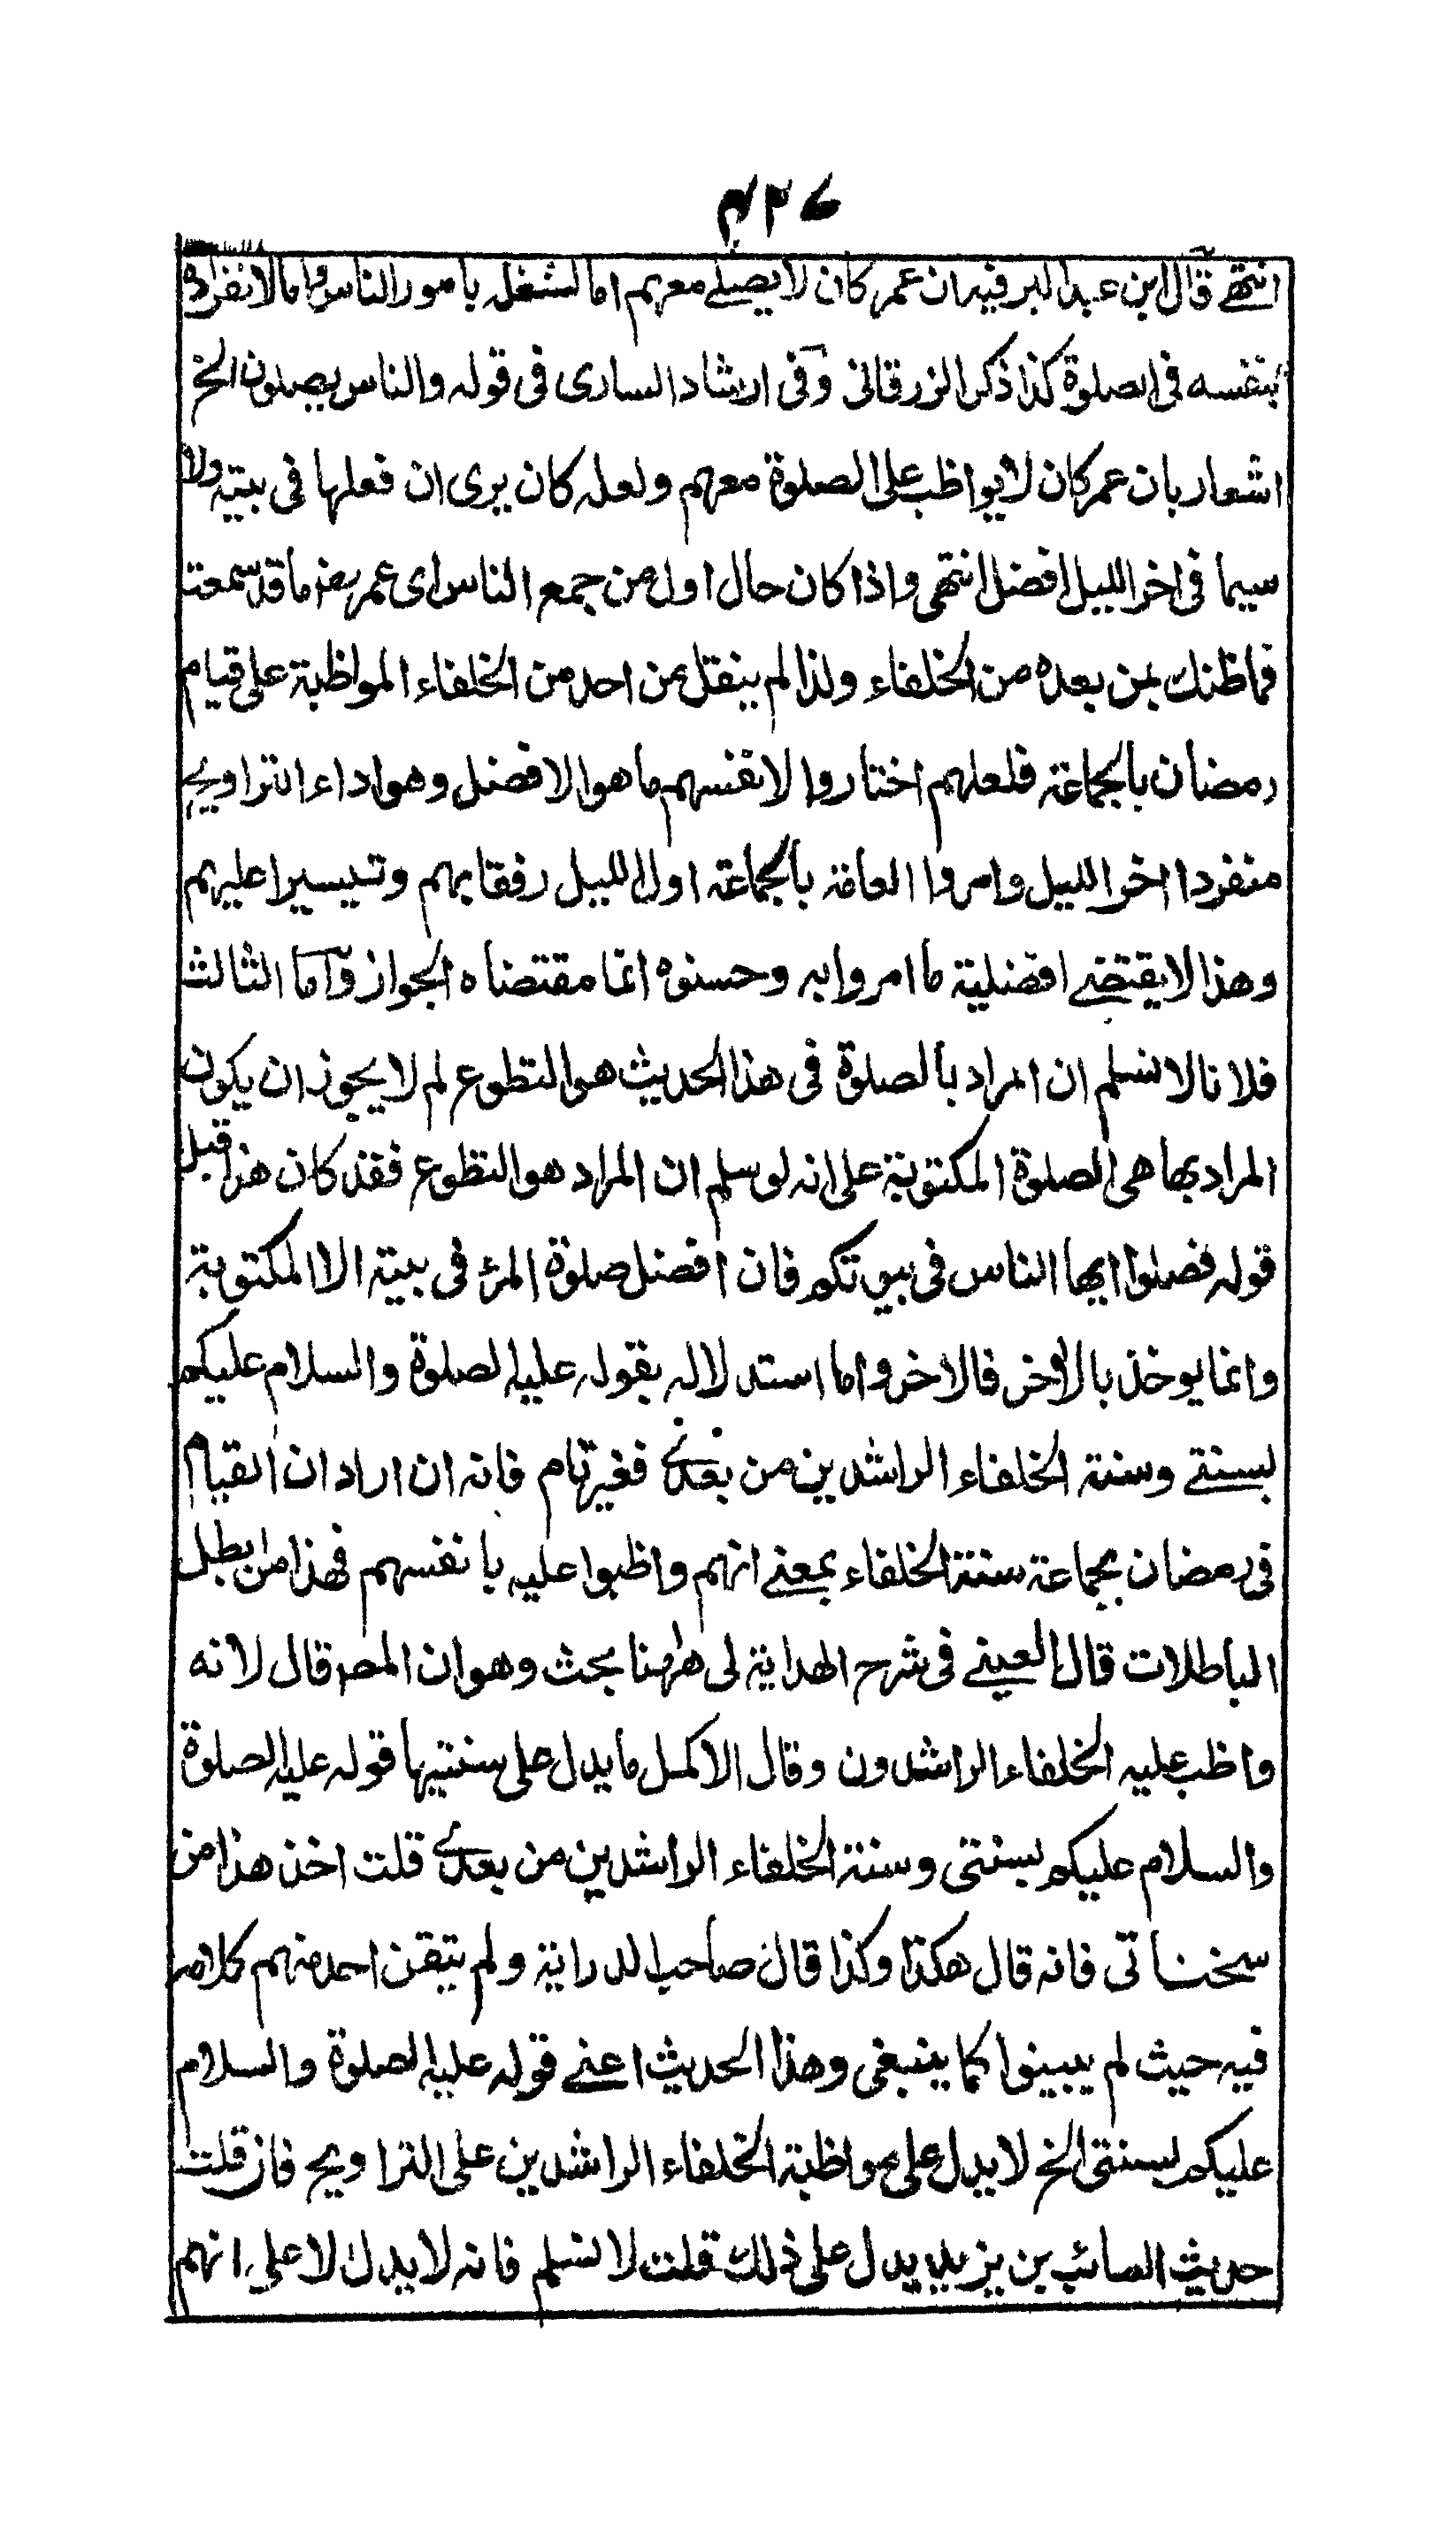 ۴۲۶
انتهے قال ابن عبد البر فيه ان عمر كان لا يصلے معهم اما لشغله بامور الناس واما لانفراده
بنفسه فى الصلوة كذا ذكر الزرقانى وفى ارشاد السارى فى قوله والناس يصلون الخ
اشعار بان عمر كان لا يواظب على الصلوة معهم ولعله كان يرى ان فعلها فى بيته ولا
سيما فى اخر الليل افضل انتهى واذا كان حال اول من جمع الناس اى عمر رضـ ما قد سمعت
فما ظنك بمن بعده من الخلفاء ولذا لم ينقل عن احد من الخلفاء المواظبة على قيام
رمضان بالجماعة فلعلهم اختاروا لانفسهم ما هو الافضل وهو اداء التراويح
منفردا اخر الليل وامروا العامة بالجماعة اول الليل رفقا بهم وتيسيرا عليهم
وهذا لا يقتضے افضلية ما امروا به وحسنوه انما مقتضاه الجواز واما الثالث
فلانا لا نسلم ان المراد بالصلوة فى هذا الحديث هو التطوع لم لا يجوز ان يكون
المراد بها هى الصلوة المكتوبة على انه لو سلم ان المراد هو التطوع فقد كان هذا قبل
قوله فصلوا ايها الناس فى بيوتكم فان افضل صلوة المرء فى بيته الا المكتوبة
وانما يوخذ بالآخر فالاخر واما استدلاله بقوله عليه الصلوة والسلام عليكم
بسنتے وسنة الخلفاء الراشدين من بعدے فغير تام فانه ان اراد ان القيام
فى رمضان بجماعة سنة الخلفاء بمعنے انهم واظبوا عليه بانفسهم فهذا من ابطل
الباطلات قال العينے فى شرح الهداية لى ههنا بحث وهو ان المصـ قال لانه
واظب عليه الخلفاء الراشدون وقال الاكمل ما يدل على سنتيها قوله عليه الصلوة
والسلام عليكم بسنتى وسنة الخلفاء الراشدين من بعدے قلت اخذ هذا من
سخناتى فانه قال هكذا وكذا قال صاحب الدراية ولم يتقن احد منهم كلامه
فيه حيث لم يبينوا كما ينبغى وهذا الحديث اعنے قوله عليه الصلوة والسلام
عليكم بسنتى الخ لا يدل على مواظبة الخلفاء الراشدين على التراويح فان قلت
حديث السائب بن يزيد يدل على ذلك قلت لا نسلم فانه لا يدل لا على انهم